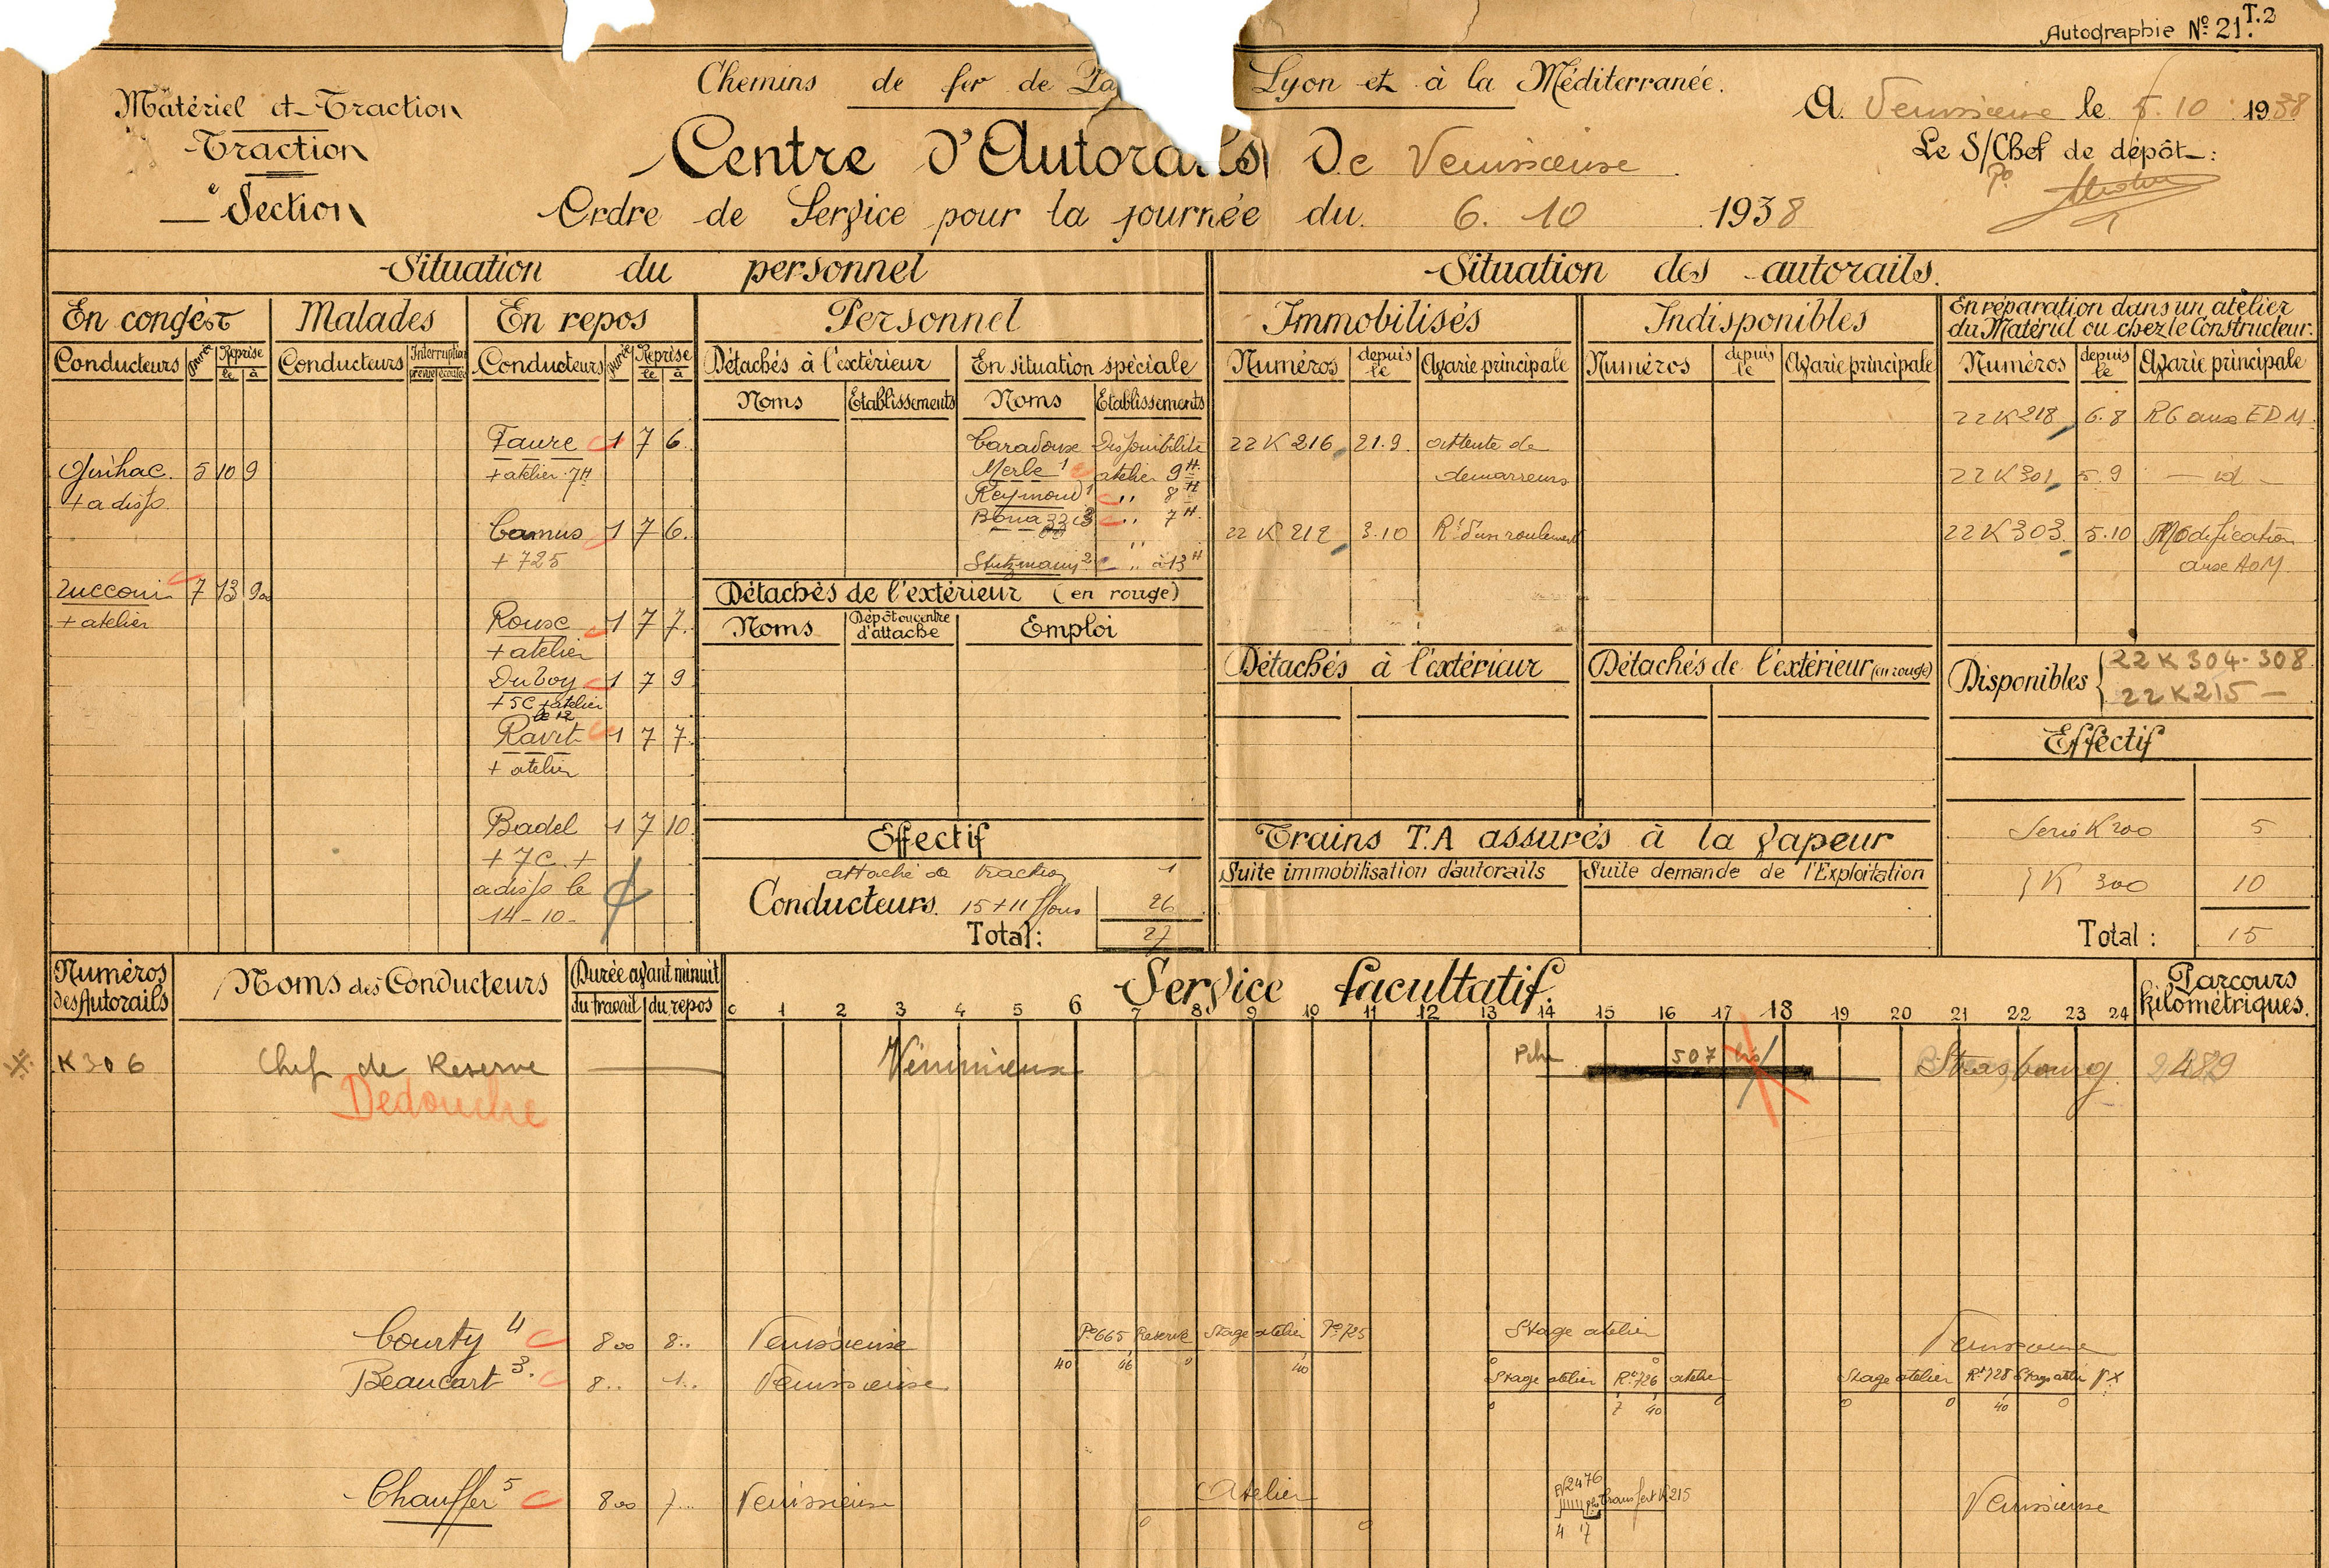 Autographie Nº 21. T.2
Chemins de fer de Pa Lyon et à la Méditerranée.
Matériel et Traction
Traction
e Section
A Venissieux le 5.10 1938
Le S/Chef de dépôt :
Po
Centre d'Autorails De Venissieux
Ordre de Service pour la journée du 6. 10 1938
Situation du personnel
Situation des autorails.
En congést
Malades
En repos
Personnel
Immobilisés
Indisponibles
En réparation dans un atelier
du Matériel ou chez le Constructeur.
Conducteurs Durée Reprise le à
Conducteurs Interruption
Conducteurs Durée Reprise le à
Détachés à l'extérieur
En situation spéciale
Noms Etablissements Noms Etablissements
Numéros depuis le Avarie principale
Numéros depuis le Avarie principale
Numéros depuis le Avarie principale
5 10 9
+ a dispo
Zucconi 7 13 9
+ atelier
Faure 1 7 6
+ atelier 7H
Camus 1 7 6.
+ 725
Roux 1 7 7.
+ atelier
Duboy 1 7 9
+ 5C + atelier
le 12
Ravit 1 7 7
+ atelier
Badel 1 7 10
+ 7C. +
a dispo le
14-10-
Disponibilité
Merle 1 atelier 9H
Reymond 1 ,, 8H
,, 7H.
Stutzmann 2 ,, à 13H
Détachés de l'extérieur (en rouge)
Noms Dépôt ou centre d'attache Emploi
Effectif
attaché de traction 1
Conducteurs. 15+11 26
Total : 27
22 K 216 21.9. attente de
demarreurs
22 K 212 3.10 Rt d'un roulement
22 K 218 6.8 RG aux EDM.
22 K 301 5.9 — id —
22 K 303. 5.10 Modification
aux AOM.
Détachés à l'extérieur
Détachés de l'extérieur (en rouge)
Disponibles { 22 K 304-308
22 K 215 —
Effectif
Serie K 200 5
} K 300 10
Total : 15
Trains T.A assurés à la vapeur
Suite immobilisation d'autorails
Suite demande de l'Exploitation
Numéros des Autorails
Noms des Conducteurs
Durée avant minuit
du travail du repos
Service facultatif.
0 1 2 3 4 5 6 7 8 9 10 11 12 13 14 15 16 17 18 19 20 21 22 23 24
Parcours kilométriques.
K 306 Chef de Reserve Vénissieux 507 bis Strasbourg 2489
Dedouche
Courty 4 8 00 8.. Venissieux Po 665 Reserve Stage atelier Po 725 Stage atelier Venissieux
40 46 0 40 0 0
Beaucart 3. 8.. 1.. Venissieux Stage atelier Rt 726 atelier Stage atelier Rt 728 Stage atelier
0 7 40 0 0 0 40 0
Chauffer 5 8 00 7.. Venissieux Atelier EV2476 transfert K215 Venissieux
0 0 4 17